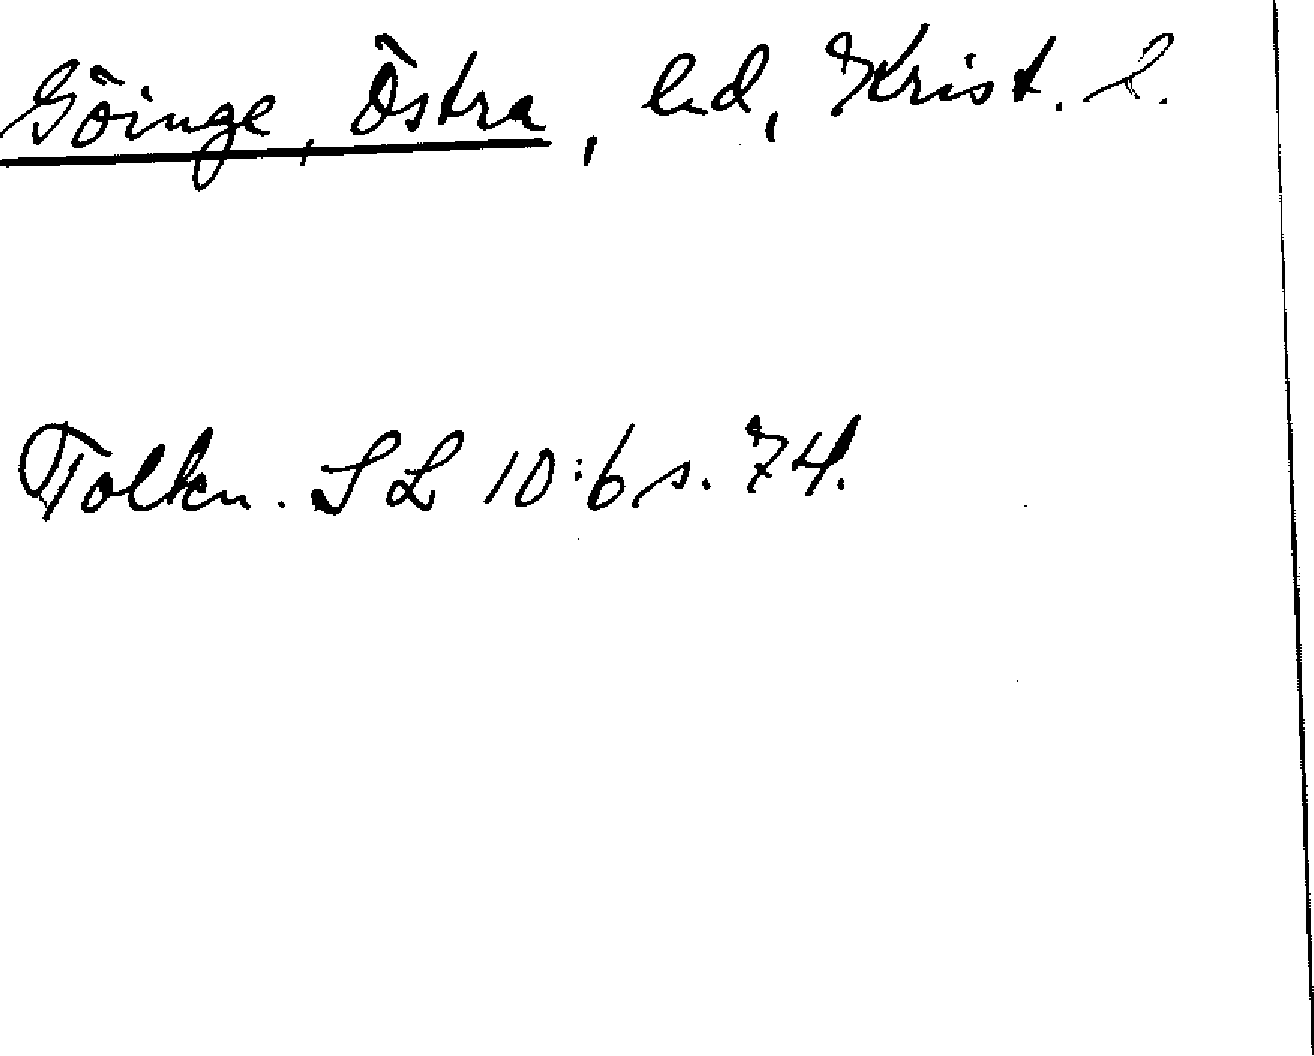 Göinge, Östra, hd, Krist. l.
Tolkn. SL 10:6 s. 74.